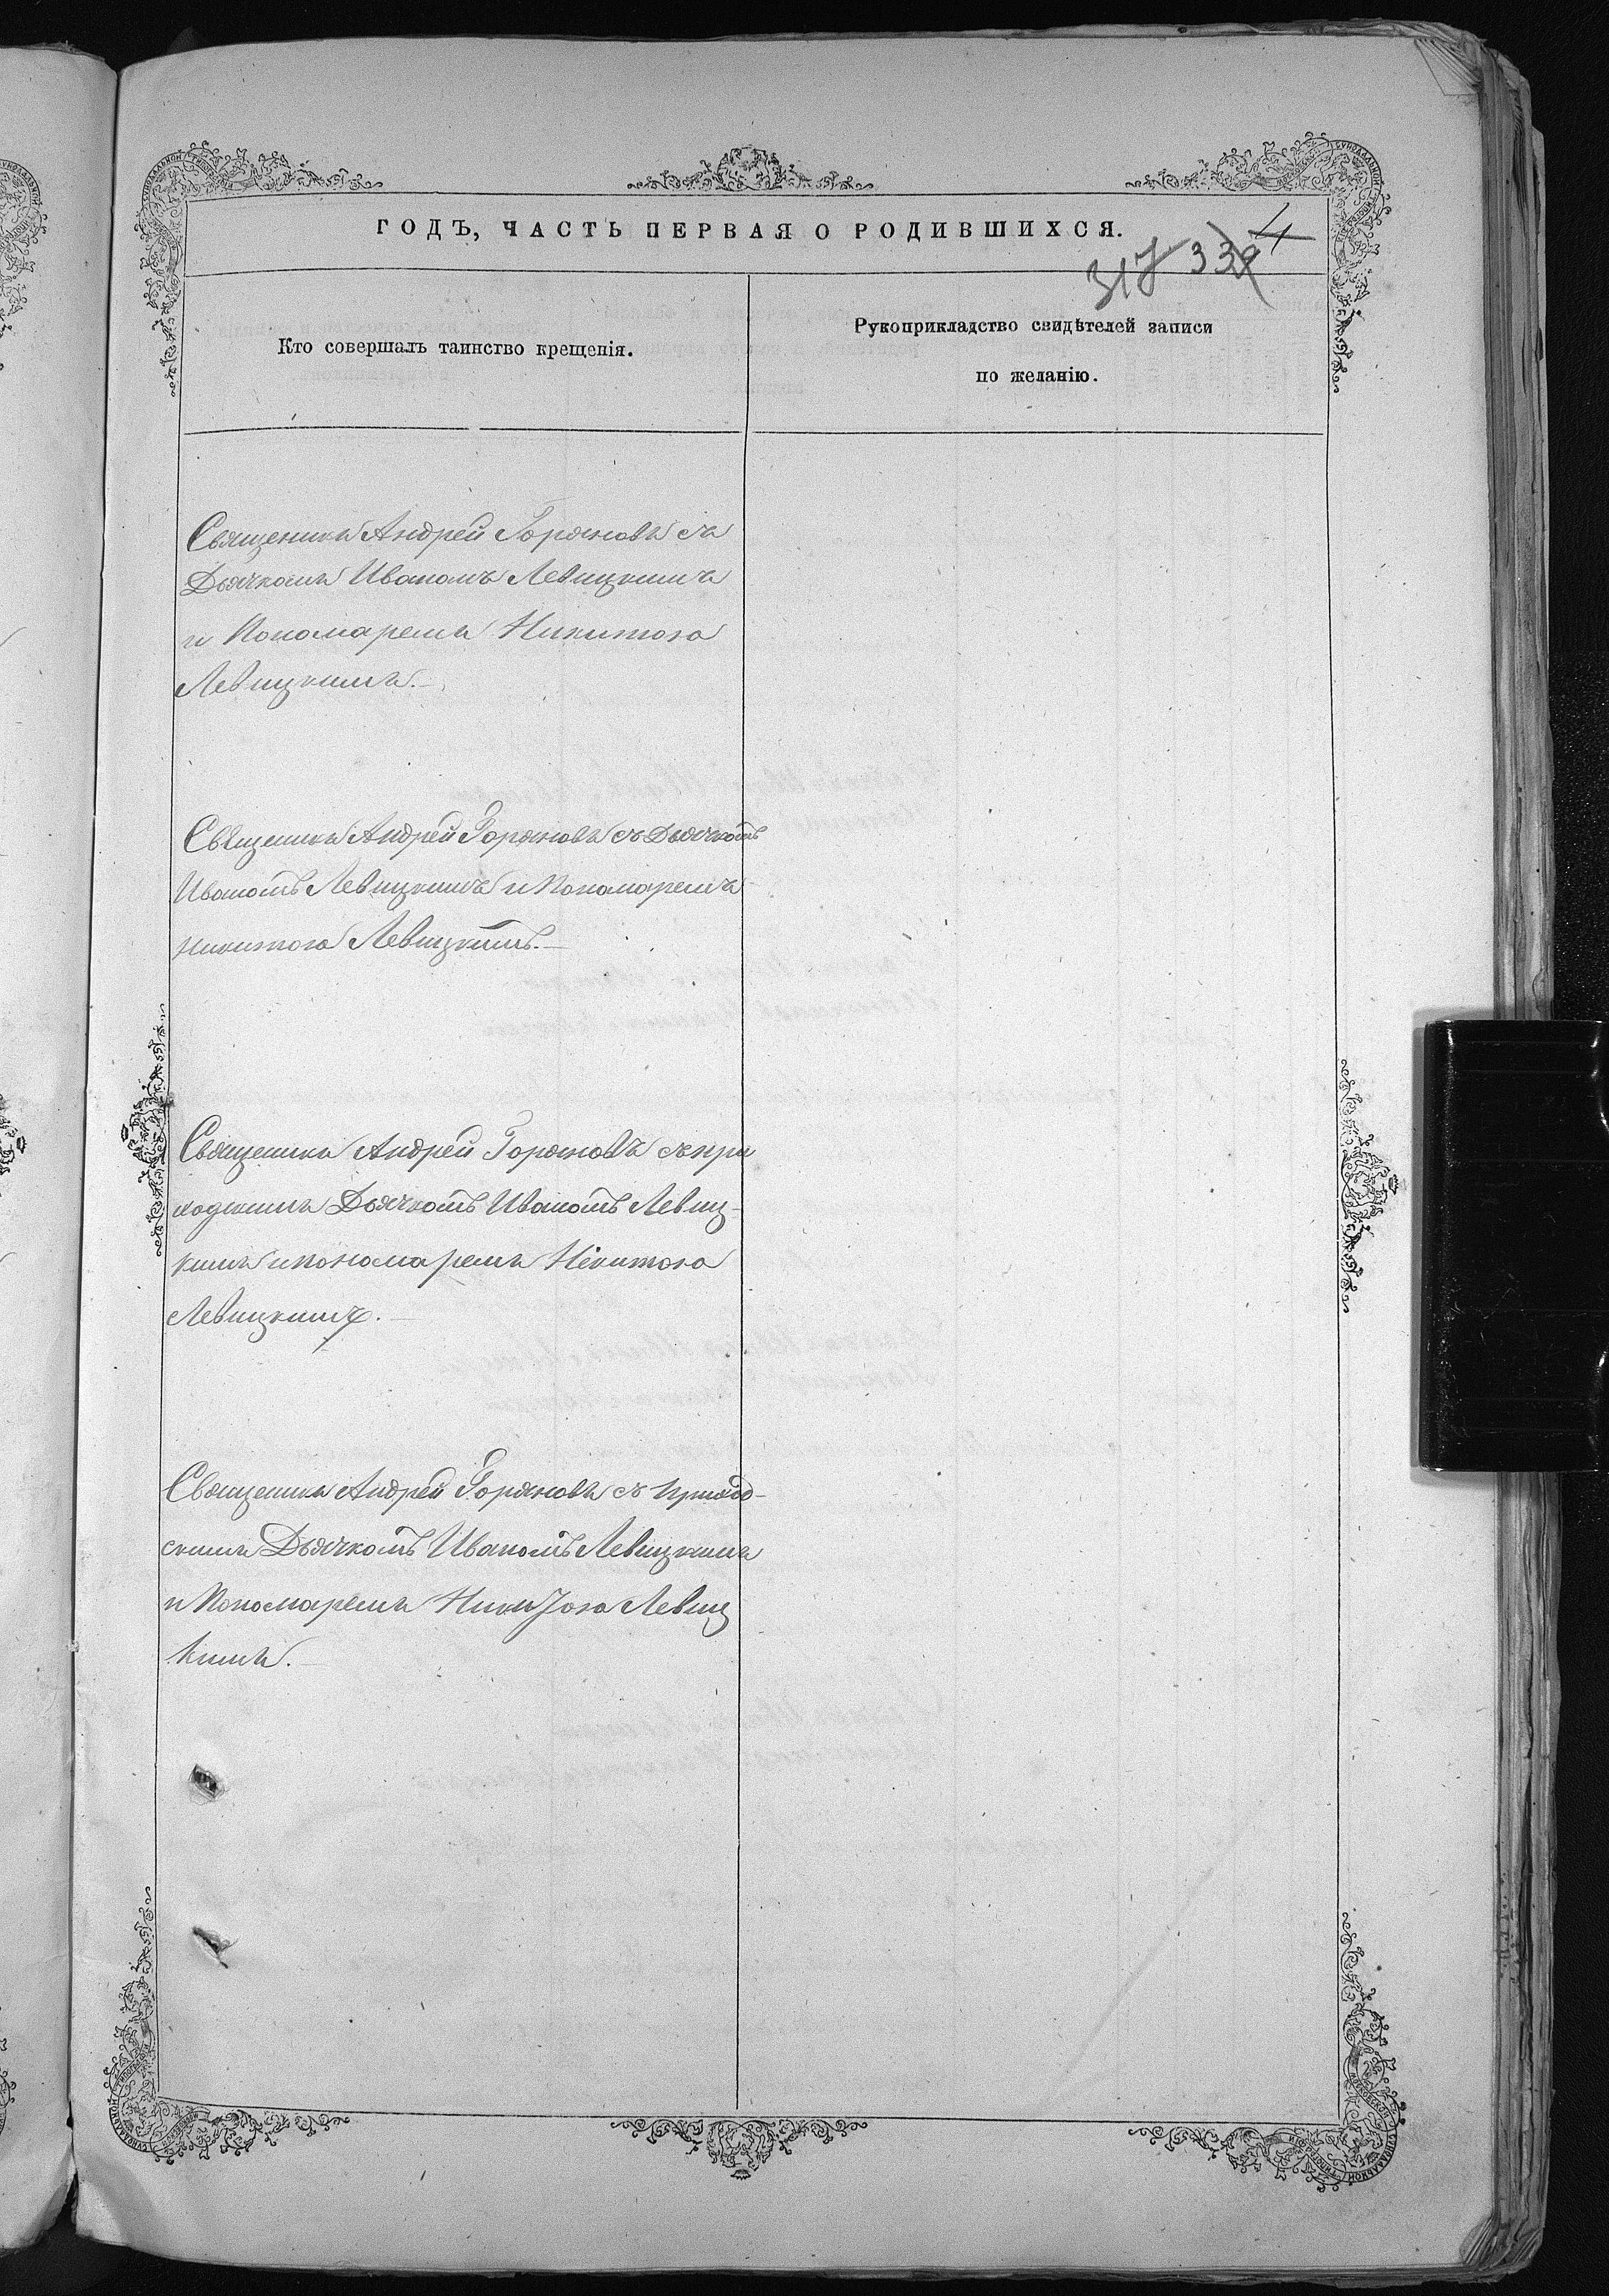 ГОДЪ, ЧАСТЬ ПЕРВАЯ О РОДИВШИХСЯ.
317 339 4
Кто совершалъ таинство крещенія.
Рукоприкладство свидѣтелей записи
по желанію.
Священикъ Андрей Горяновъ съ
Дьячкомъ Иваномъ Левицкимъ
и Пономаремъ Никитою
Левицкимъ.—
Священикъ Андрей Горяновъ съ Дьячкомъ
Иваномъ Левицкимъ и Пономаремъ
Никитою Левицкимъ.—
Священикъ Андрей Горяновъ съ при
ходскимъ Дьячкомъ Иваномъ Левиц-
кимъ и пономаремъ Никитою
Левицкимъ.—
Священикъ Андрей Горяновъ съ приход-
скимъ Дьячкомъ Иваномъ Левицкимъ
и Пономаремъ Никитою Левиц
кимъ.—